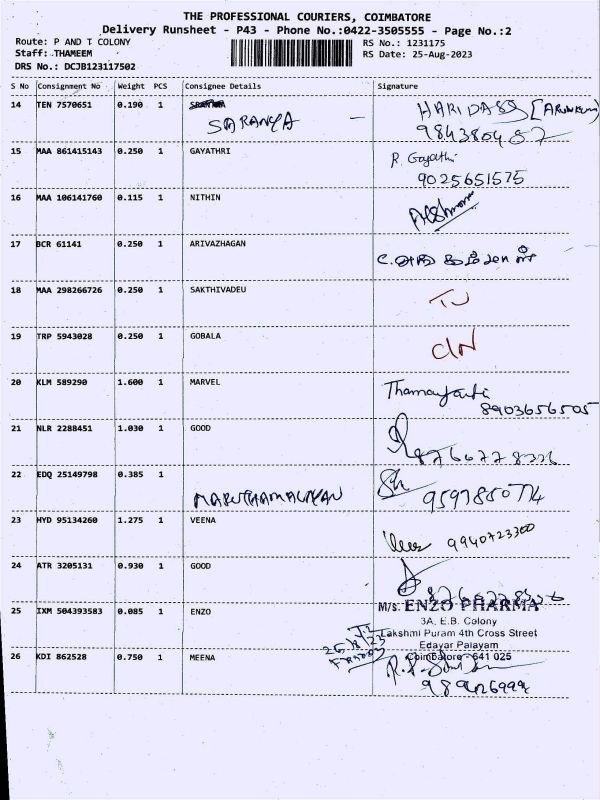 THE PROFESSIONAL COURIERS, COIMBATORE
Delivery Runsheet - P43 - Phone No.:0422-3505555 - Page No.:2
Route: P AND T COLONY RS No.: 1231175
Staff: THAMEEM RS Date: 25-Aug-2023
DRS No.: DCJB123117502
S No Consignment No Weight PCS Consignee Details Signature
14 TEN 7570651 0.190 1 HARI DASS
SARANYA
15 MAA 861415143 0.250 1 GAYATHRI R. Gayathri
9025651575
16 MAA 106141760 0.115 1 NITHIN
17 BCR 61141 0.250 1 ARIVAZHAGAN
18 MAA 298266726 0.250 1 SAKTHIVADEU
19 TRP 5943028 0.250 1 GOBALA
20 KLM 589290 1.600 1 MARVEL
8903656505
21 NLR 2288451 1.030 1 GOOD
22 EDQ 25149798 0.385 1
MARUTHAMALAYAN
23 HYD 95134260 1.275 1 VEENA
9940723300
24 ATR 3205131 0.930 1 GOOD
M/s. ENZO PHARMA
25 IXM 504393583 0.085 1 ENZO
3A. E.B. Colony
Lakshmi Puram 4th Cross Street
Edayar Palayam
26 KDI 862528 0.750 1 MEENA Coimbatore - 641 025